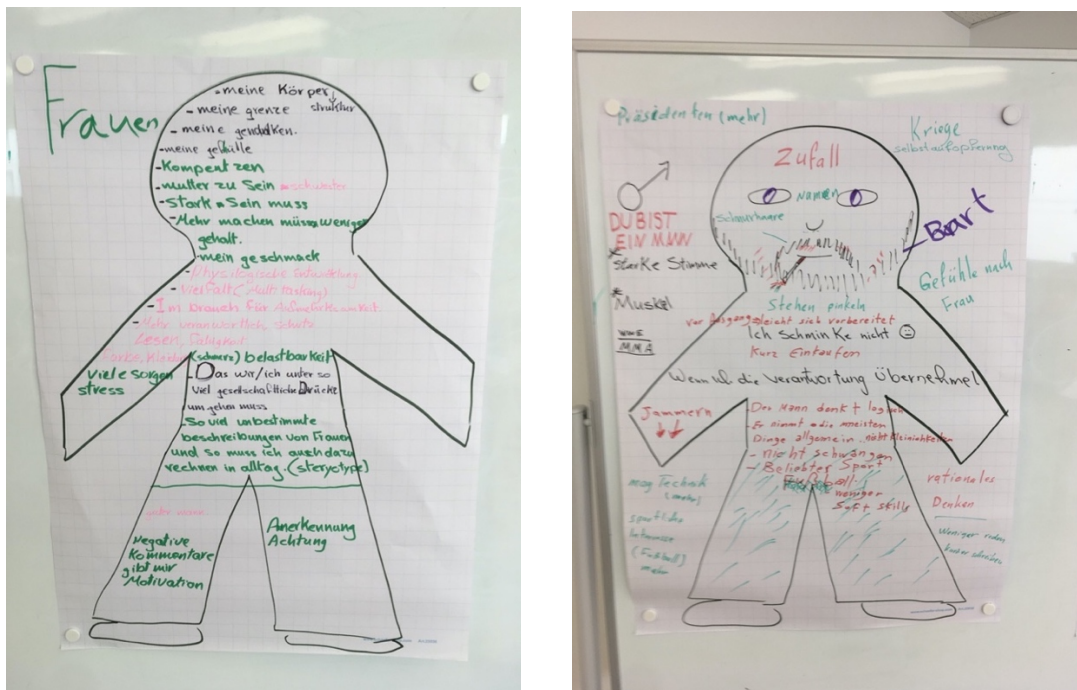 Frauen
- meine Körper
struktur
- meine grenze
- meine gendalken.
- meine gefühle
- Kompentzen
- mutter zu Sein - schwister
- Stark Sein muss
- Mehr machen müss weniger
gehalt.
- mein geschmack
- Physiologische Entwicklung
- Vielfalt (Multitasking)
- Im brauch für Aufmerksamkeit.
- Mehr verantwortlich, schutz
Lesen,
Farbe, Kleider
(schmerz) belastbarkeit
Viele sorgen
stress
- Das wir/ich unter so
viel gesellschaftliche Drücke
um gehen muss
- So viel unbestimmte
beschreibungen von Frauen
und so muss ich auch dazu
rechnen in alltag. (steryotype)
Negative
Kommentare
gibt mir
Motivation
Anerkennung
Achtung
Präsidenten (mehr)
Kriege
selbstaufopferung
Zufall
Namen
DU BIST
EIN MANN
Schnurhaare
Bart
* starke Stimme
* Muskel
MMA
Gefühle nach
Frau
Stehen pinkeln
vor Ausgang leicht sich vorbereitet
Ich schminke nicht ☺
Kurz Einkaufen
Wenn ich die verantwortung übernehme!
Jammern
- Der Mann denkt logisch
- Er nimmt die meisten
Dinge allgemein, nicht kleinichkeiten
- nicht schwanger
- Beliebtes Sport
Fußball
weniger
Soft skills
mag Technik
(mehr)
sportliche
(Fußball)
mehr
rationales
Denken
Weniger reden